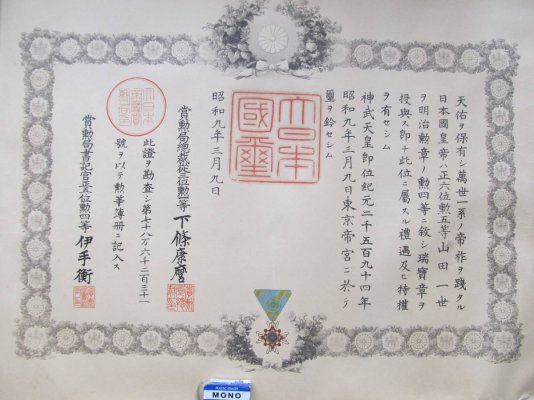 天佑ヲ保有シ萬世一系ノ帝祚ヲ踐タル
日本國皇帝ハ正六位勲五等山田一世
ヲ明治勲章ノ勲四等ニ敘シ瑞寶章ヲ
授與ス即チ此位ニ屬スル禮遇及ヒ特權
ヲ有セシム
神武天皇即位紀元二千五百九十四年
昭和九年三月九日東京帝宮ニ於テ
璽ヲ鈐セシム
大日本國璽
昭和九年三月九日
賞勲局總裁從三位勲一等下條康麿
此證ヲ勘査シ第七十八万六千二百三十一
號ヲ以テ勲等簿冊ニ記入ス
賞勲局書記官正五位勲四等伊手衡
PLASTIC ERASER
MONO